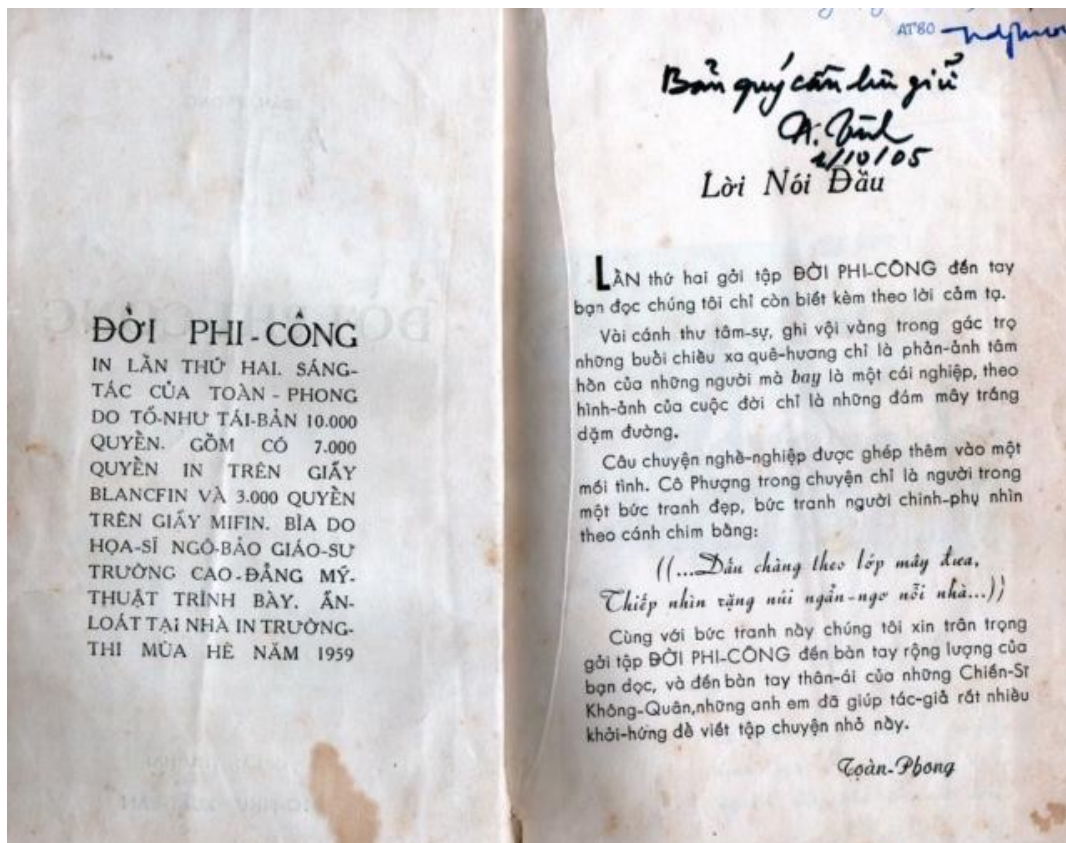 ĐỜI PHI-CÔNG
IN LẦN THỨ HAI. SÁNG-
TÁC CỦA TOÀN-PHONG
DO TỐ-NHƯ TÁI-BẢN 10.000
QUYỂN. GỒM CÓ 7.000
QUYỂN IN TRÊN GIẤY
BLANCFIN VÀ 3.000 QUYỂN
TRÊN GIẤY MIFIN. BÌA DO
HỌA-SĨ NGÔ-BẢO GIÁO-SƯ
TRƯỜNG CAO-ĐẲNG MỸ-
THUẬT TRÌNH BÀY. ẤN-
LOÁT TẠI NHÀ IN TRƯỜNG-
THI MÙA HÈ NĂM 1959
AT80
Bản quý cần lưu giữ
/10/05
Lời Nói Đầu
LẦN thứ hai gởi tập ĐỜI PHI-CÔNG đến tay
bạn đọc chúng tôi chỉ còn biết kèm theo lời cảm tạ.
Vài cánh thư tâm-sự, ghi vội vàng trong gác trọ
những buổi chiều xa quê-hương chỉ là phản-ảnh tâm
hồn của những người mà bay là một cái nghiệp, theo
hình-ảnh của cuộc đời chỉ là những đám mây trắng
dặm đường.
Câu chuyện nghề-nghiệp được ghép thêm vào một
mối tình. Cô Phượng trong chuyện chỉ là người trong
một bức tranh đẹp, bức tranh người chinh-phụ nhìn
theo cánh chim bằng:
((...Dấu chàng theo lớp mây đưa,
Thiếp nhìn rặng núi ngẩn-ngơ nỗi nhà...))
Cùng với bức tranh này chúng tôi xin trân trọng
gởi tập ĐỜI PHI-CÔNG đến bàn tay rộng lượng của
bạn đọc, và đến bàn tay thân-ái của những Chiến-Sĩ
Không-Quân,những anh em đã giúp tác-giả rất nhiều
khởi-hứng để viết tập chuyện nhỏ này.
Toàn-Phong